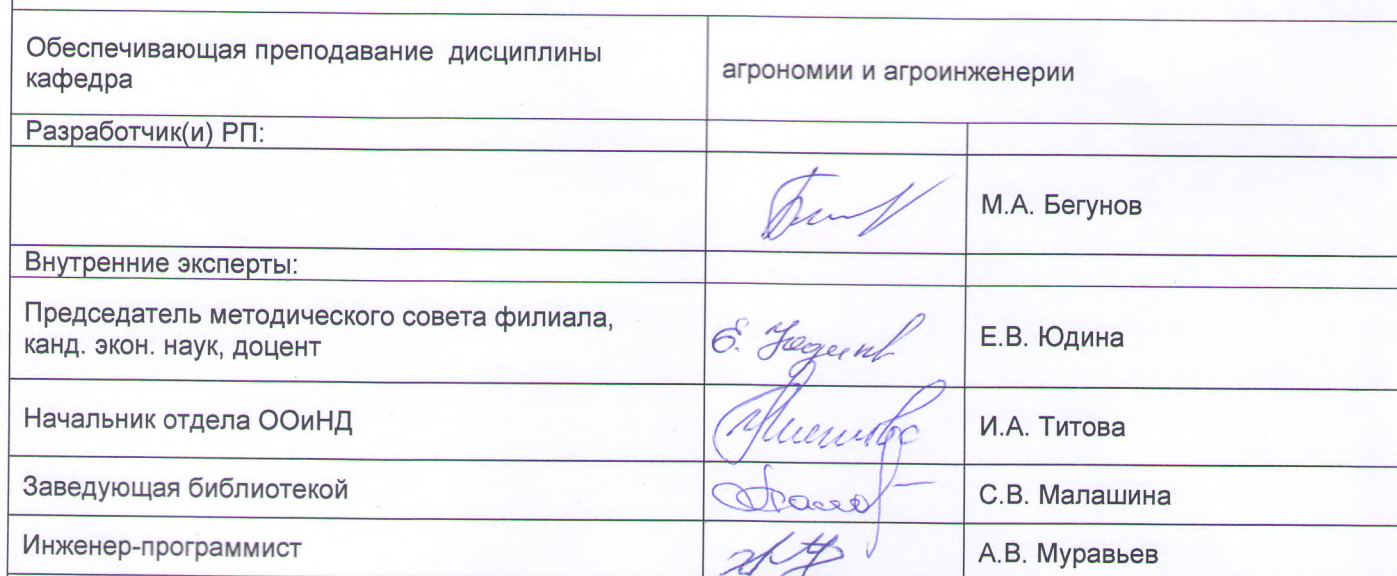 Обеспечивающая преподавание дисциплины
кафедра
агрономии и агроинженерии
Разработчик(и) РП:
М.А. Бегунов
Внутренние эксперты:
Председатель методического совета филиала,
канд. экон. наук, доцент
Е.В. Юдина
Начальник отдела ООиНД
И.А. Титова
Заведующая библиотекой
С.В. Малашина
Инженер-программист
А.В. Муравьев